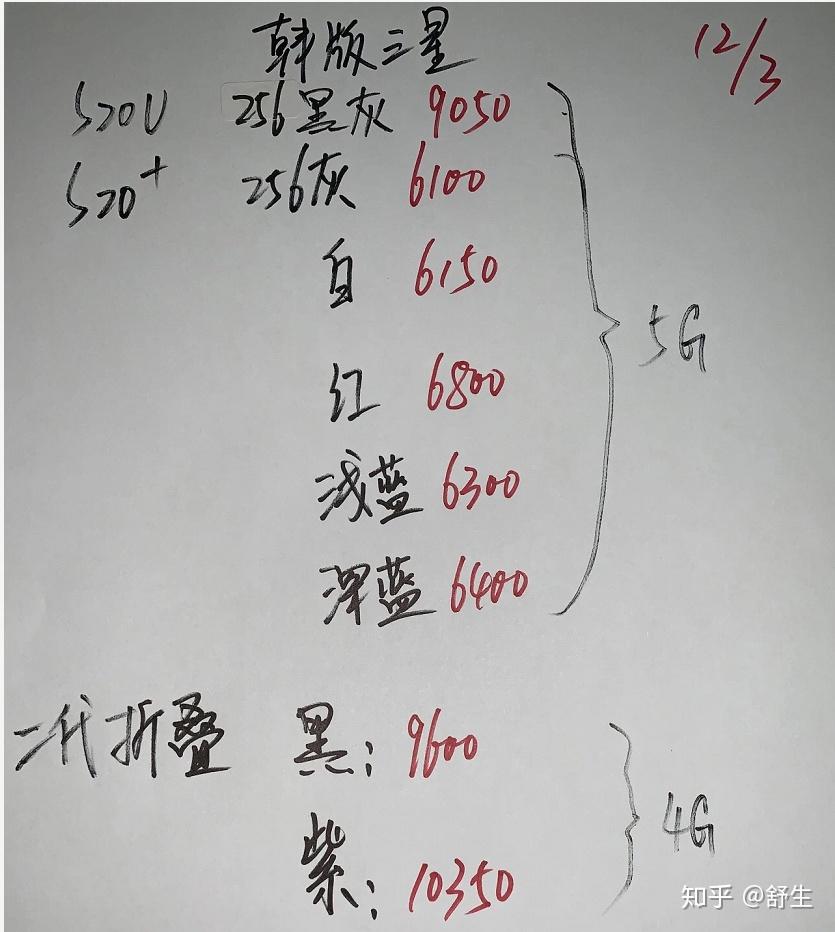 韩版三星 12/3
S20U 256黑灰 9050
S20+ 256灰 6100
白 6150
红 6800
5G
浅蓝 6300
深蓝 6400
二代折叠 黑: 9600
4G
紫: 10350
知乎 @舒生